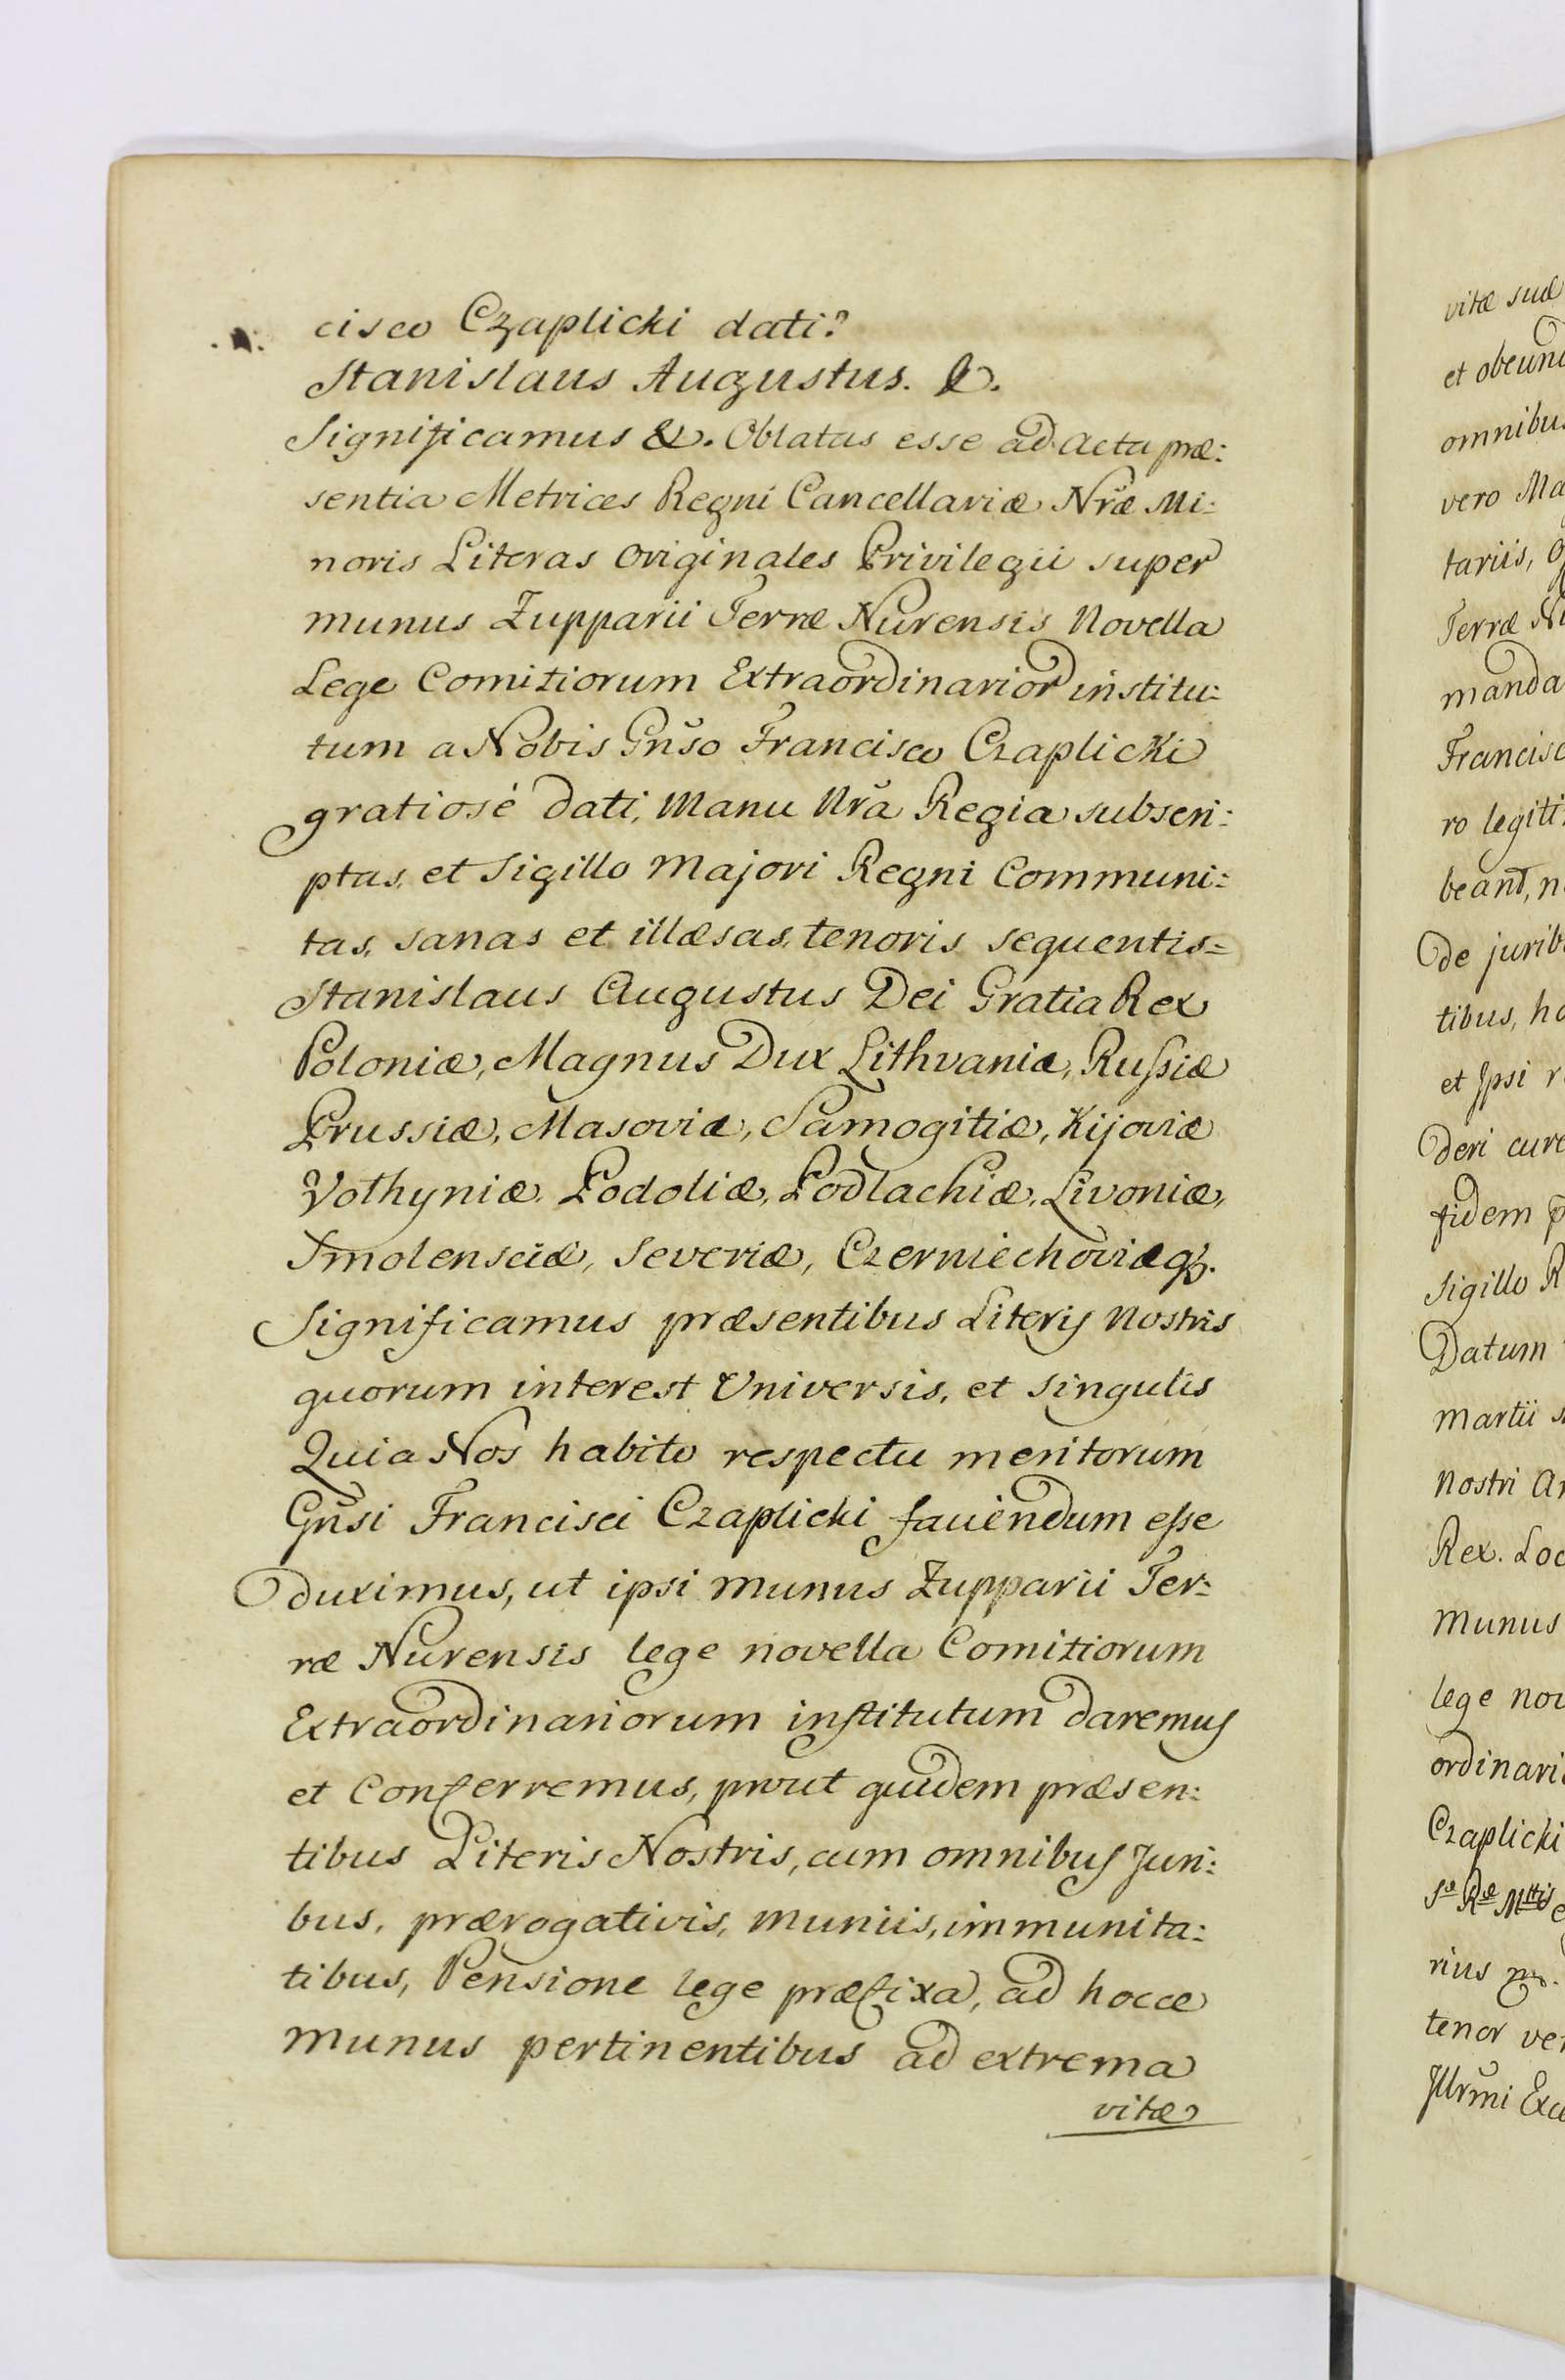 cisco Czaplicki dati.
Stanislaus Augustus. &.
Significamus &. Oblatas esse ad Acta præ:
sentia Metrices Regni Cancellariæ Nřæ Mi:
noris Literas Originales Privilegii super
munus Zupparii Terræ Nurensis Novella
Lege Comitiorum Extraordinarior institu:
tum a Nobis Gnšo Francisco Czaplicki
gratiosè dati, Manu Nřa Regia subscri:
ptas, et Sigillo Majori Regni Communi:
tas, sanas et illæsas, tenoris sequentis=
Stanislaus Augustus Dei Gratia Rex
Poloniæ, Magnus Dux Lithvaniæ, Rußiæ
Prussiæ, Masoviæ, Samogitiæ, Kijoviæ
Volhyniæ, Podoliæ, Podlachiæ, Livoniæ,
Smolensciæ, Severiæ, Czerniechoviæq.
Significamus præsentibus Literis Nostris
quorum interest Universis, et singulis
Quia Nos habito respectu meritorum
Gnsi Francisci Czaplicki faviendum eſse
duximus, ut ipsi munus Zupparii Ter:
ræ Nurensis lege novella Comitiorum
Extraordinariorum inſtitutum daremus
et Conferremus, prout quidem præsen:
tibus Literis Nostris, cum omnibus Juri:
bus, prærogativis, muniis, immunita:
tibus, Pensione lege præfixa, ad hocce
munus pertinentibus ad extrema
vitæ
vitæ suæ
et obeund
omnibus
vero Ma
tariis, O
Terræ Nu
manda
Francisc
ro legiti
beant, n
de jurib
tibus, ho
et Ipsi r
deri cure
fidem p
Sigillo R
Datum
Martii
Nostri An
Rex. Loc
Munus
lege nov
ordinari
Czaplicki
Sæ Ræ Mttis
rius
tenor ve
Illrmi Exce